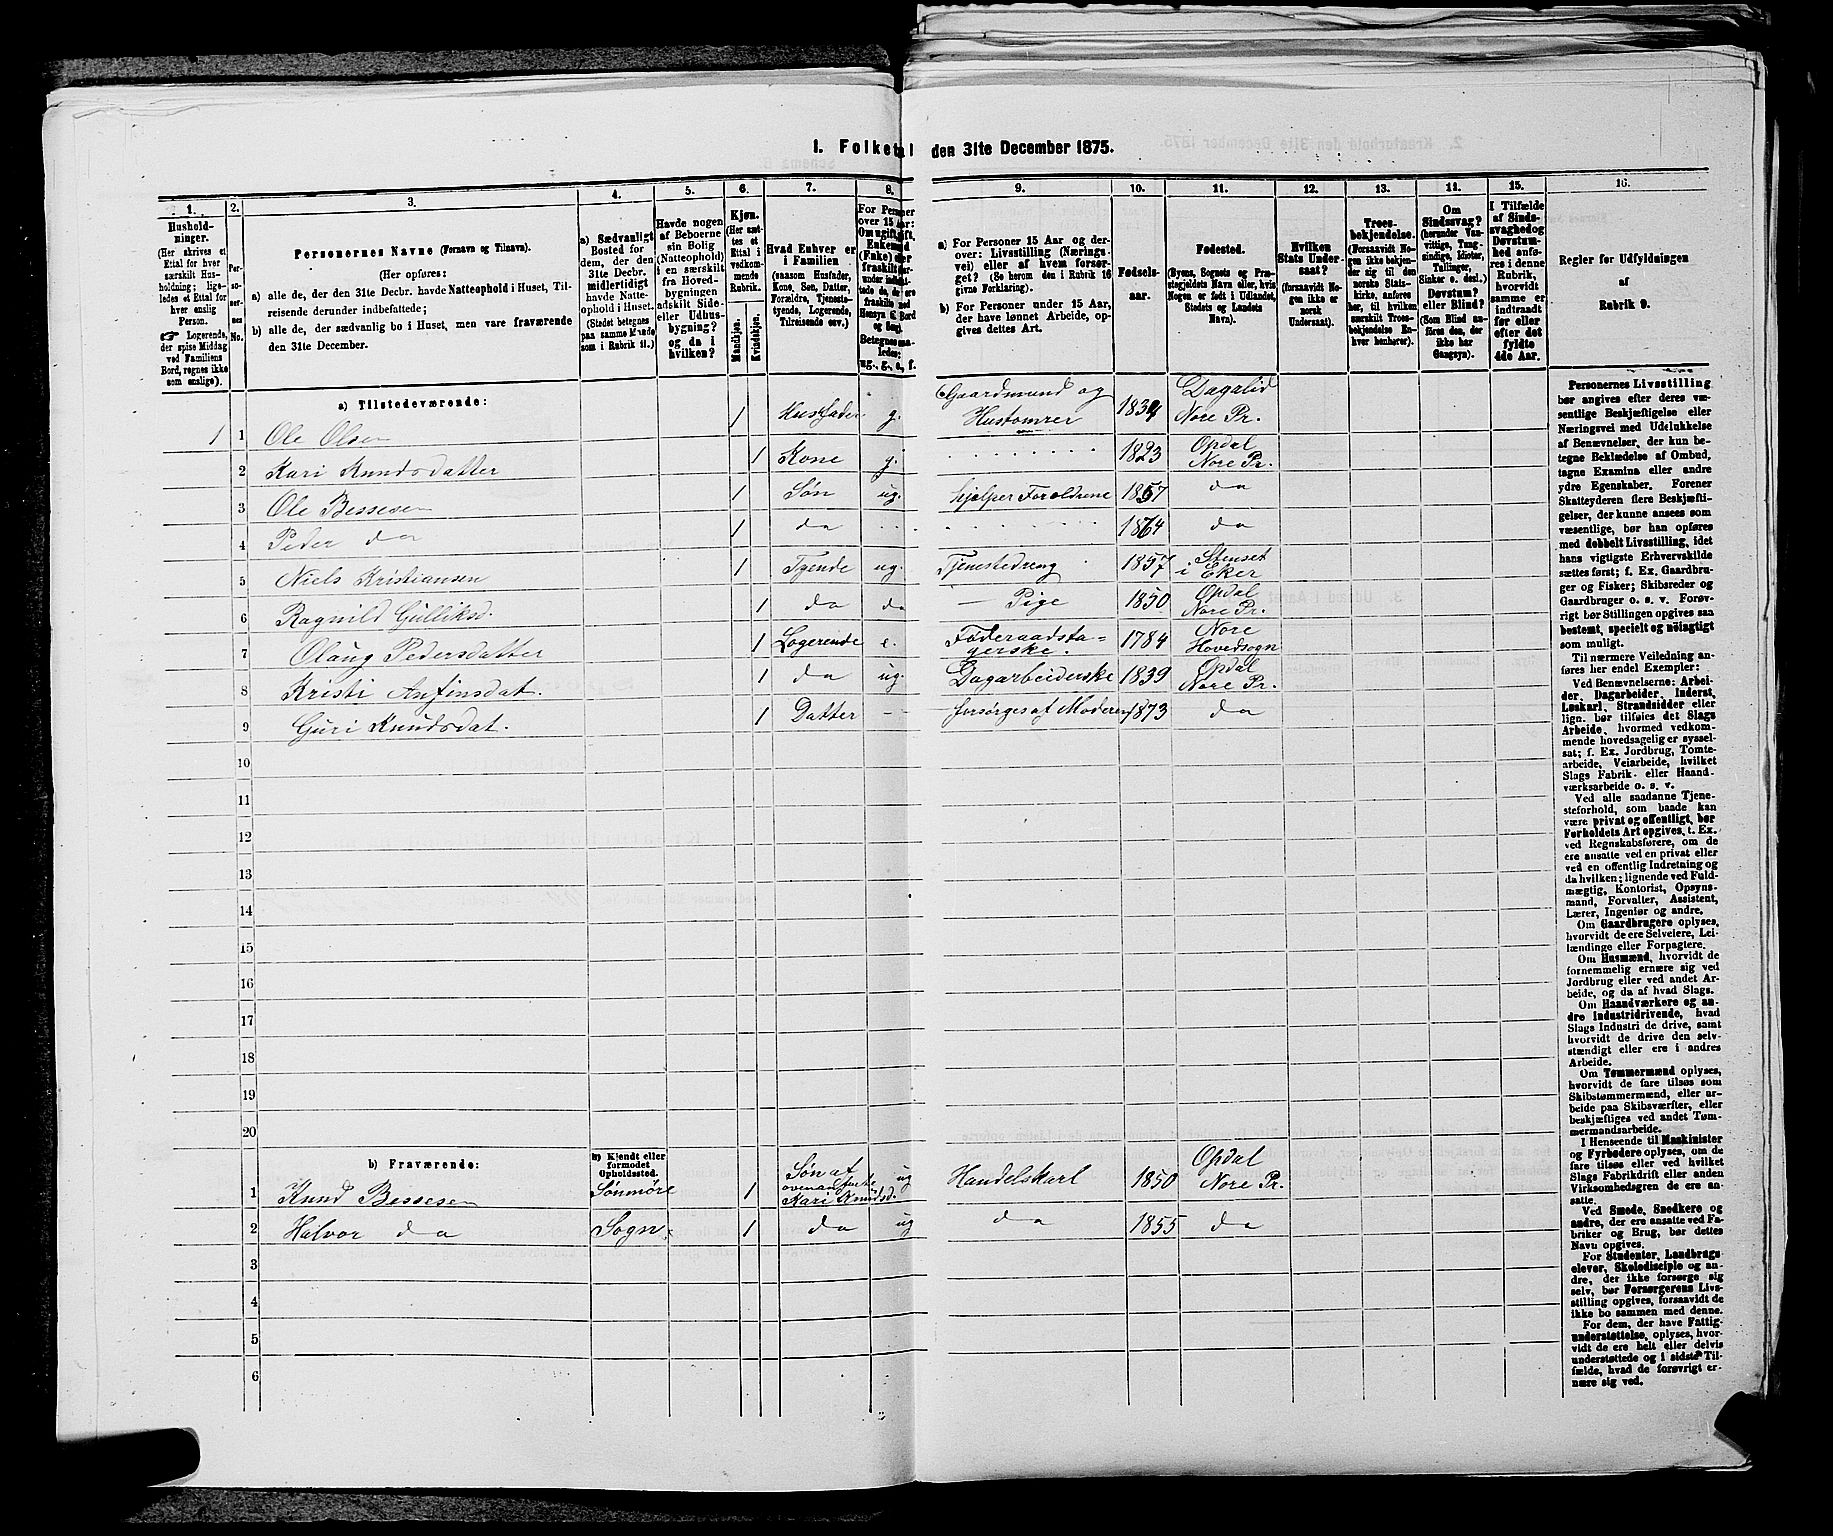 1. Folketal den 31te December 1875.
1. 2. 3. 4. 5. 6. 7. 8. 9. 10. 11. 12. 13. 14. 15. 16.
Hushold-
ninger.
(Her skrives et
Ettal for hver
særskilt Hus-
holdning; lige-
ledes et Ettal for
hver enslig
Person.
☞ Logerende,
der spise Middag
ved Familiens
Bord, regnes ikke
som enslige).
Per-
so-
ner-
nes
No.
Personernes Navne (Fornavn og Tilnavn).
(Her opføres:
a) alle de, der den 31te Decbr. havde Natteophold i Huset, Til-
reisende derunder indbefattede;
b) alle de, der sædvanlig bo i Huset, men vare fraværende
den 31te December.
a) Sædvanligt
Bosted for
dem, der den
31te Decbr.
midlertidigt
havde Natte-
ophold i Huset.
(Stedet betegnes
paa samme Maade
som i Rubrik 11.)
Havde nogen
af Beboerne
sin Bolig
(Natteophold)
i en særskilt
fra Hoved-
bygningen
adskilt Side-
eller Udhus-
bygning?
og da i
hvilken?
Kjøn.
(Her sæt-
tes et
Ettal i
vedkom-
mende
Rubrik.
Mandkjøn.
Kvindekjøn.
Hvad Enhver er
i Familien
(saasom Husfader,
Kone, Søn, Datter,
Forældre, Tjeneste-
tyende, Logerende,
Tilreisende osv.)
For Personer
over 15 Aar:
Om ugift, gift,
Enkemand
(Enke) eller
fraskilt
Betegnes saa-
ledes:
ug., g., e., f.
a) For Personer 15 Aar og der-
over: Livsstilling (Nærings-
vei) eller af hvem forsør-
get? (Se herom den i Rubrik 16
givne Forklaring).
b) For Personer under 15 Aar,
der have lønnet Arbeide, op-
gives dettes Art.
Fødsels-
aar.
Fødested.
(Byens, Sognets og Præ-
stegjeldets Navn eller, hvis
Nogen er født i Udlandet,
Stedets og Landets
Navn).
Hvilken
Stats Under-
saat?
(forsaavidt No-
gen ikke er
norsk
Undersaat).
Troes-
bekjendelse.
(Forsaavidt No-
gen ikke bekjen-
der sig til den
norske Stats-
kirke, anføres
her, til hvilken
særskilt Troes-
bekjendelse En-
hver henhører).
Om
Sindssvag?
(herunder Van-
vittige, Tung-
sindige, Idioter,
Tullinger,
Sinker o. desl.)
Døvstum?
eller Blind?
(Som Blind an-
føres den, der
ikke har
Gangsyn).
I Tilfælde
af Sinds-
svaghed og
Døvstum-
hed anfø-
res i denne
Rubrik,
hvorvidt
samme er
indtraadt
før eller
efter det
fyldte
4de Aar.
Regler for Udfyldningen
af
Rubrik 9.
a) Tilstedeværende:
1 1 Ole Olsen 1 Husfader g. Gaardmand og Hustømrer 1834 Dagalid Nore Pr.
2 Kari Knudsdatter 1 Kone g. 1823 Opdal Nore Pr.
3 Ole Bessesen 1 Søn ug. hjelper Foreldrene 1857 da
4 Peder da 1 da 1864 da
5 Niels Kristiansen 1 Tyende ug. Tjenestedreng 1857 Stenset i Eker
6 Ragnild Gulliksd. 1 da da — Pige 1850 Opdal Nore Pr.
7 Olaug Pedersdatter 1 Logerende e. Føderaadsta=gerske. 1784 Nore Hovedsogn
8 Kristi Anfinsdat. 1 da ug. Dagarbeiderske 1839 Opdal Nore Pr.
9 Guri Knudsdat. 1 Datter — forsørges af Moderen 1873 da
10
11
12
13
14
15
16
17
18
19
20
b) Fraværende:
b) Kjendt eller
formodet
Opholdssted.
1 Knud Bessesen Søndmøre 1 Søn af ovenanførte Kari Knudsd. ug Handelskarl 1850 Opdal Nore Pr.
2 Halvor da Sogn 1 da ug da 1855 da
3
4
5
6
Personernes Livsstilling
bør angives efter deres væ-
sentlige Beskjæftigelse eller
Næringsvei med Udelukkelse
af Benævnelser, der kun be-
tegne Beklædelse af Ombud,
tagne Examina eller andre
ydre Egenskaber. Forener
Skatteyderen flere Beskjæfti-
gelser, der kunne ansees som
væsentlige, bør han opføres
med dobbelt Livsstilling, idet
hans vigtigste Erhvervskilde
sættes først; f. Ex. Gaardbru-
ger og Fisker; Skibsreder og
Gaardbruger o. s. v. Forøv-
rigt bør Stillingen opgives saa
bestemt, specielt og nøiagtigt
som muligt.
Til nærmere Veiledning an-
føres her endel Exempler:
Ved Benævnelserne: Arbei-
der, Dagarbeider, Inderst,
Løskarl, Strandsidder eller
lign. bør tilføies det Slags
Arbeide, hvormed vedkom-
mende hovedsagelig er syssel-
sat; f. Ex. Jordbrug, Tomte-
arbeide, Veiarbeide, hvilket
Slags Fabrik- eller Haand-
værksarbeide o. s. v.
Ved alle saadanne Tjene-
steforhold, som baade kan
være privat og offentligt, bør
Forholdets Art opgives, t. Ex.
ved Regnskabsførere, om de
ere ansatte ved en privat eller
ved en offentlig Indretning og
da hvilken; lignende ved Fuld-
mægtig, Kontorist, Opsyns-
mand, Forvalter, Assistent,
Lærer, Ingeniør og andre.
Om Gaardbrugere oplyses,
hvorvidt de ere Selveiere, Lei-
lændinge eller Forpagtere.
Om Husmænd, hvorvidt de
fornemmelig ernære sig ved
Jordbrug eller ved andet Ar-
beide, og da af hvad Slags.
Om Haandværkere og an-
dre Industridrivende, hvad
Slags Industri de drive, samt
hvorvidt de drive den selv-
stændigt eller ere i andres
Arbeide.
Om Tømmermænd oplyses,
hvorvidt de fare tilsøs som
Skibstømmermænd, eller ar-
beide paa Skibsværfter, eller
beskjæftiges ved andet Tøm-
mermandsarbeide.
I Henseende til Maskinister
og Fyrbødere oplyses, om de
fare tilsøs eller ved hvilket
Slags Fabrikdrift eller anden
Virksomhedsgren de ere an-
satte.
Ved Smede, Snedkere og
andre, der ere ansatte ved Fa-
briker og Brug, bør dettes
Navn opgives.
For Studenter, Landbrugs-
elever, Skoledisciple og an-
dre, der ikke forsørge sig
selv, bør Forsørgerens Livs-
stilling opgives, forsaavidt de
ikke bo sammen med denne.
For dem, der have Fattig-
understøttelse, oplyses, hvor-
vidt de ere helt eller delvis
understøttede og i sidste Til-
fælde, hvad de forøvrigt er-
nære sig ved.